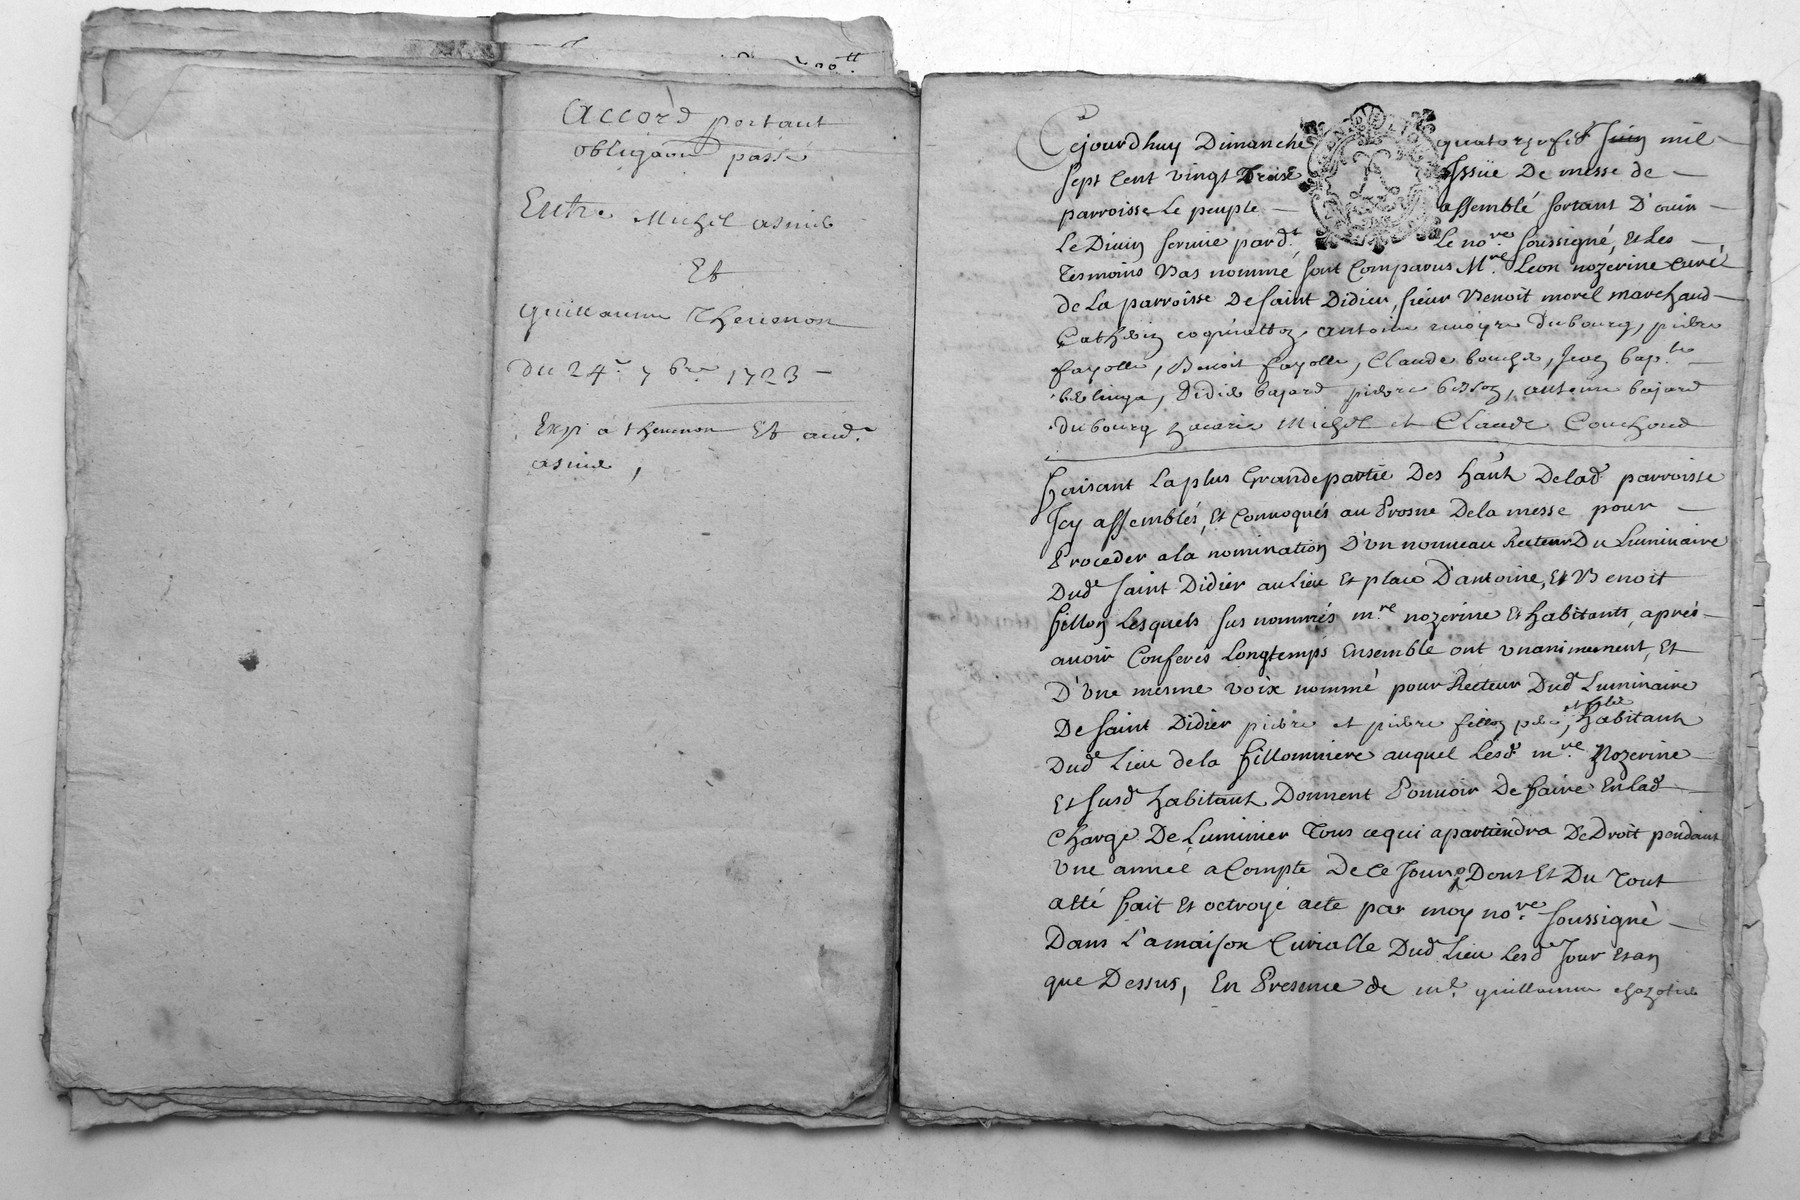 Accord portant
obligaon passé
Entre Michel asmié
Et
guillaume Thevenon
du 24e 7bre 1723
Exp a thevenon Et aud.
asmié,
Cejourdhuy Dimanche quatorze Juin mil
sept Cent vingt Trois Issüe De messe de
parroisse Le peuple assemblé sortant D'ouir
Le Divin service pard.t Le no.re soussigné, Et Les
Tesmoins Bas nommé sont Comparus M.re Leon nozerine curé
de La parroisse De saint Didier, sieur Benoit morel marchand
Antoine dubourg, pierre
fayolle, Benoit fayolle, Claude bouché, Jean bap.te
Didier bajard pierre besson, antoine bajard
dubourg Michel et Claude Couchoud
faisant La plus Grande partie Des hãnts Delad parroisse
Icy assemblés, Et Convoqués au Prosne Dela messe pour
Proceder a la nomination D'un nouveau Recteur Du Luminaire
Dud.t saint Didier au Lieu Et place D'antoine, Et Benoit
fillon Lesquels sus nommés m.re nozerine Et habitants, aprés
avoir Conferés Longtemps Ensemble ont vnanimement, Et
D'vne mesme voix nommé pour Recteur Dud Luminaire
De saint Didier pierre et pierre fillon pere, et fils habitants
Dud Lieu de la fillonniere auquel Lesd m.re Nozerine
Et susd habitants Donnent Pouvoir De faire En Lad
charge De Luminier Tous ce qui apartiendra De Droit pendant
vne anneé a Compte De Ce Jour, Dont Et Du Tout
a été fait Et octroyé acte par moy no.re soussigné
Dans L'a maison Curialle Dud Lieu Lesd Jour Et an
que Dessus, En Presence de m.e guillaume